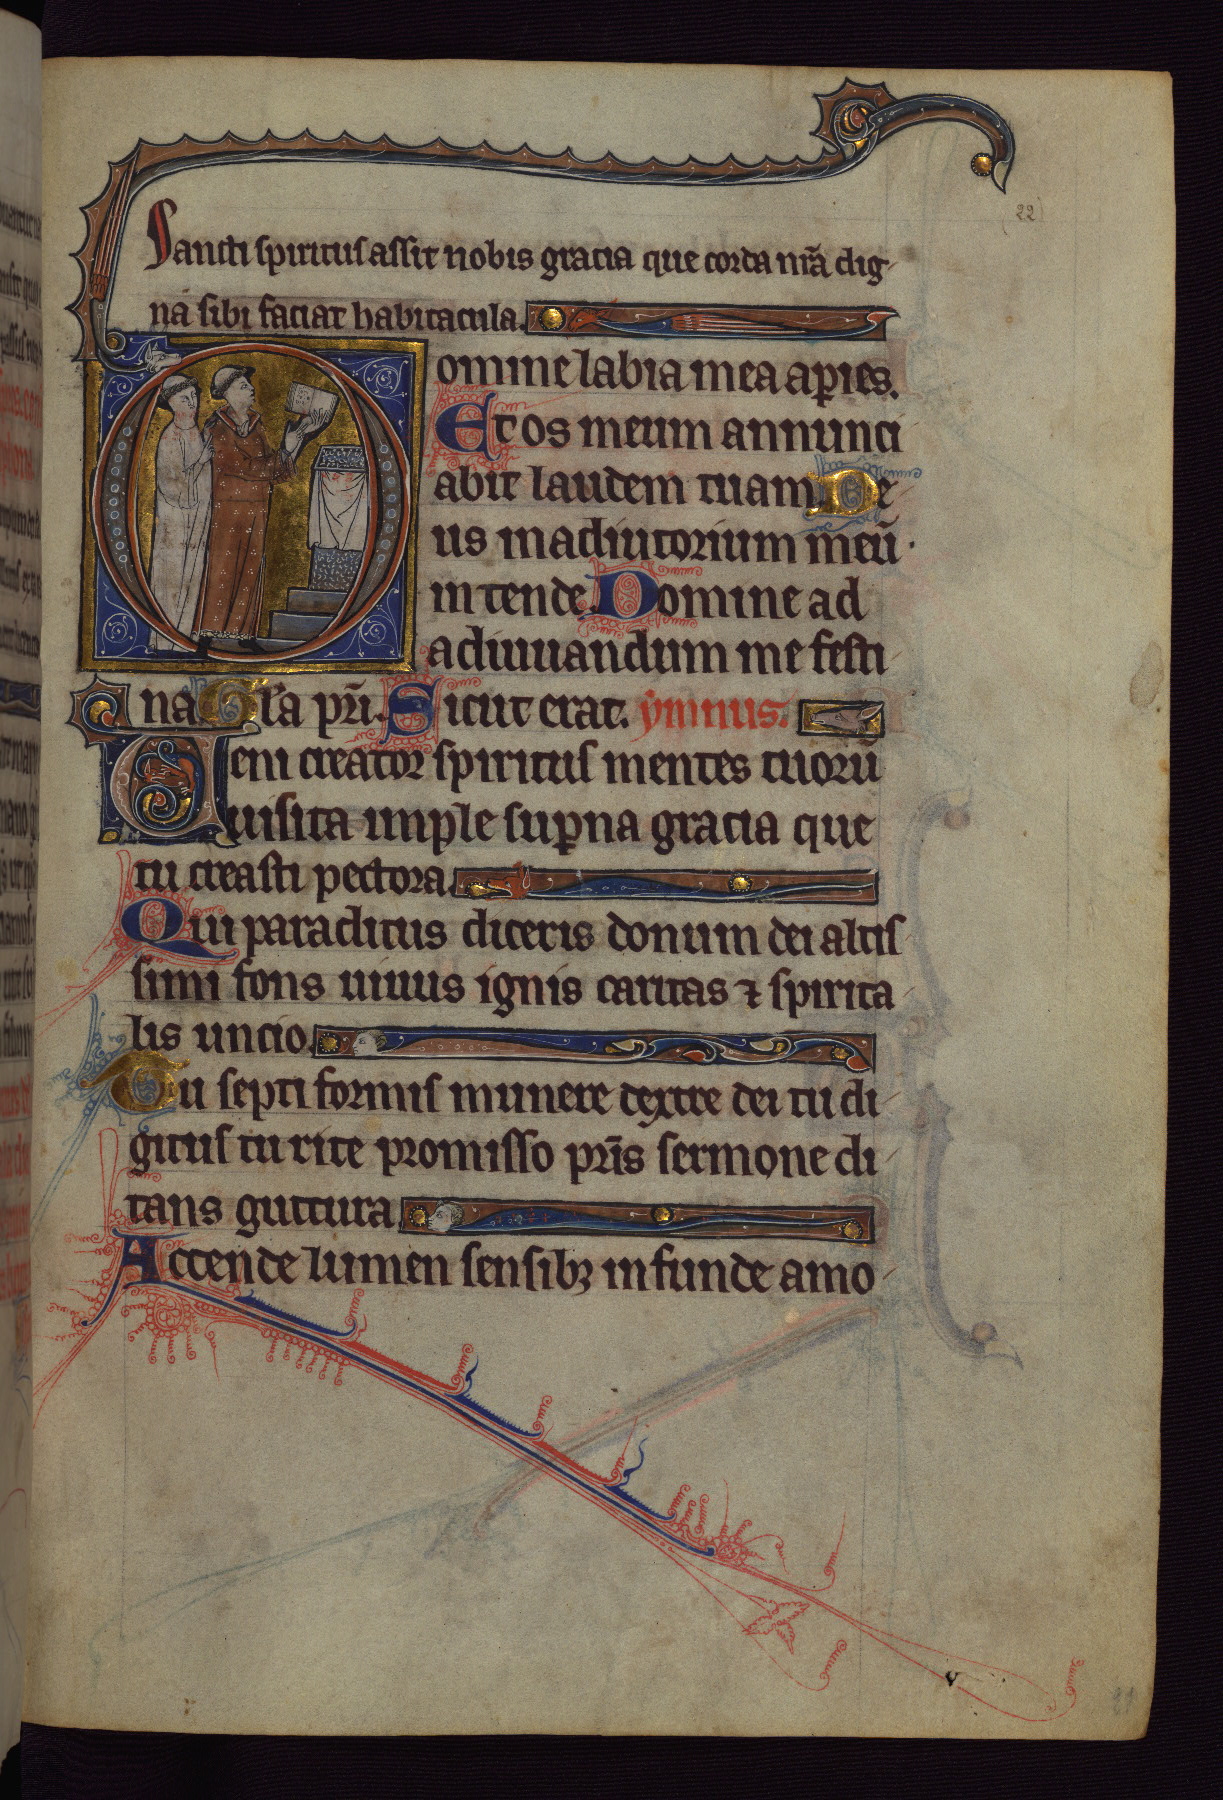 22
Sancti spiritus assit nobis gracia que corda nr̄a dig
na sibi faciat habitacula.
Domine labia mea aperies.
Et os meum annunci
abit laudem tuam De
us in adiutorium meū
intende. Domine ad
adiuuandum me festi
na. Gl'a pri. Sicut erat. ymnus.
Ueni creator spiritus mentes tuorū
uisita imple superna gracia que
tu creasti pectora.
Qui paraclitus diceris donum dei altis
simi fons uiuus ignis caritas ⁊ spirita
lis uncio.
Tu septiformis munere dextre dei tu di
gitus tu rite promisso pr̄is sermone di
tans guttura
Accende lumen sensibꝫ infunde amo